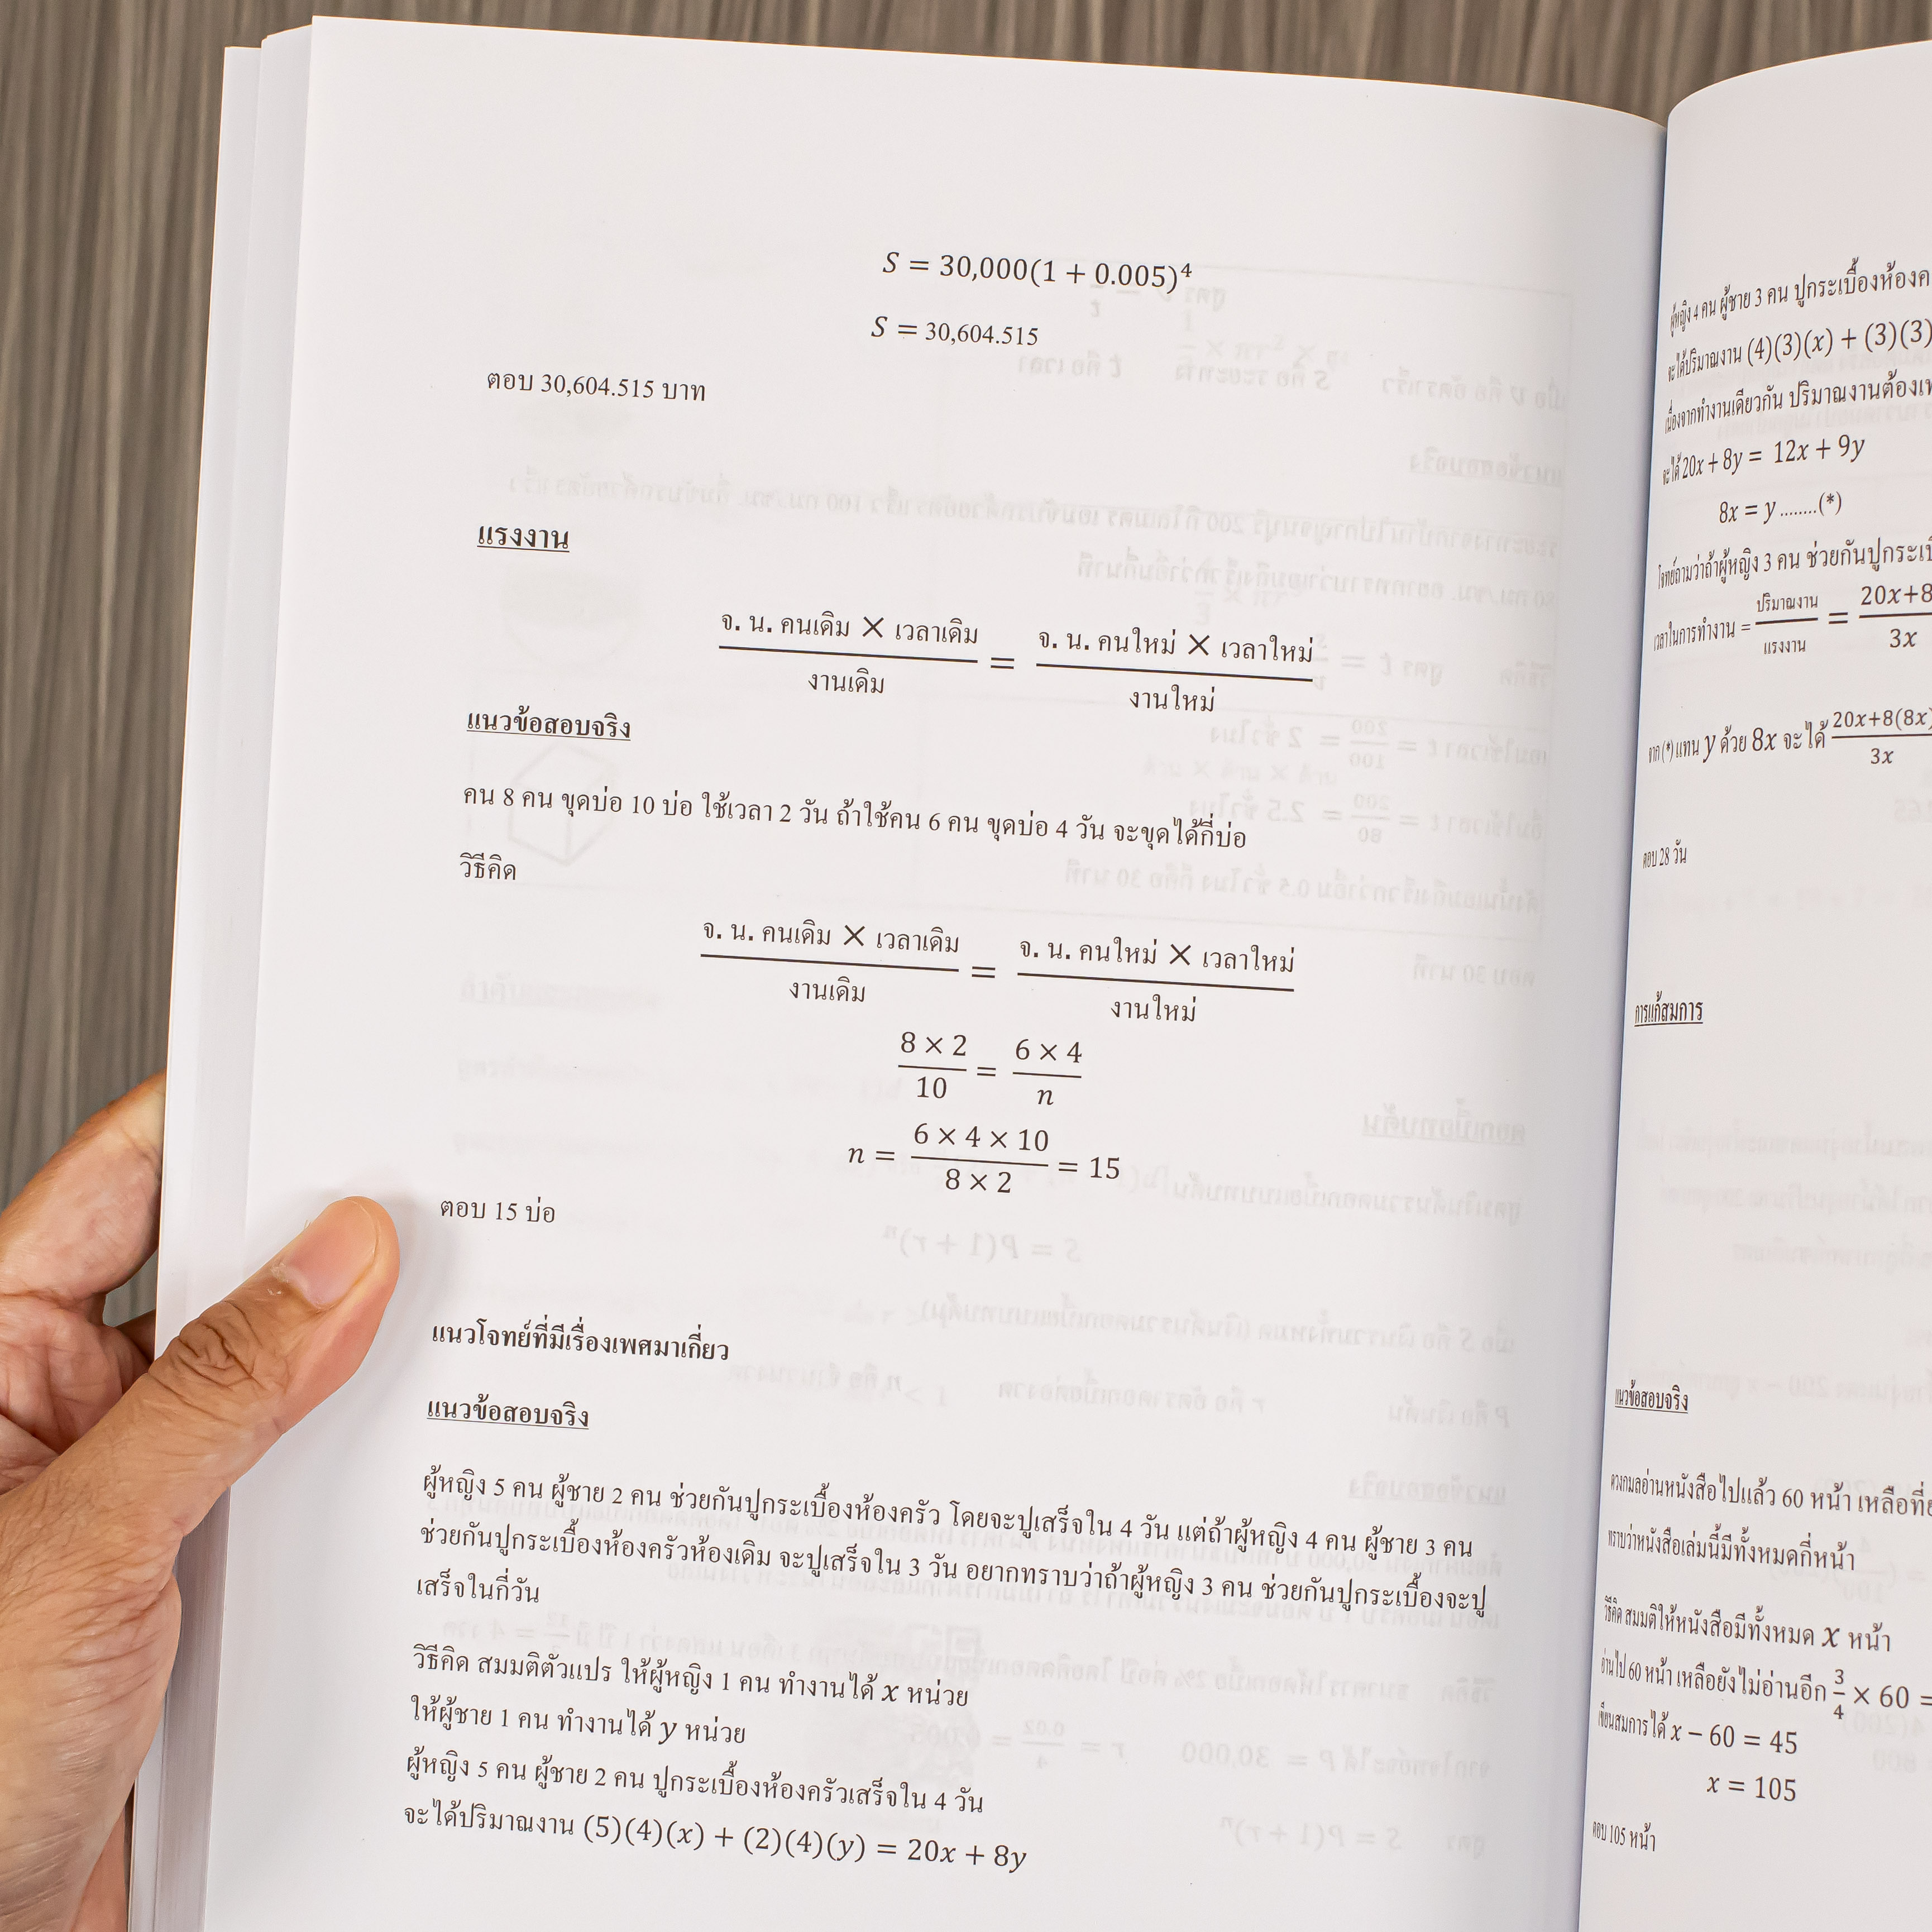 S = 30,000(1 + 0.005)⁴
S = 30,604.515
ตอบ 30,604.515 บาท
แรงงาน
จ. น. คนเดิม × เวลาเดิม / งานเดิม = จ. น. คนใหม่ × เวลาใหม่ / งานใหม่
แนวข้อสอบจริง
คน 8 คน ขุดบ่อ 10 บ่อ ใช้เวลา 2 วัน ถ้าใช้คน 6 คน ขุดบ่อ 4 วัน จะขุดได้กี่บ่อ
วิธีคิด
จ. น. คนเดิม × เวลาเดิม / งานเดิม = จ. น. คนใหม่ × เวลาใหม่ / งานใหม่
8 × 2 / 10 = 6 × 4 / n
n = 6 × 4 × 10 / 8 × 2 = 15
ตอบ 15 บ่อ
แนวโจทย์ที่มีเรื่องเพศมาเกี่ยว
แนวข้อสอบจริง
ผู้หญิง 5 คน ผู้ชาย 2 คน ช่วยกันปูกระเบื้องห้องครัว โดยจะปูเสร็จใน 4 วัน แต่ถ้าผู้หญิง 4 คน ผู้ชาย 3 คน
ช่วยกันปูกระเบื้องห้องครัวห้องเดิม จะปูเสร็จใน 3 วัน อยากทราบว่าถ้าผู้หญิง 3 คน ช่วยกันปูกระเบื้องจะปู
เสร็จในกี่วัน
วิธีคิด สมมติตัวแปร ให้ผู้หญิง 1 คน ทำงานได้ x หน่วย
ให้ผู้ชาย 1 คน ทำงานได้ y หน่วย
ผู้หญิง 5 คน ผู้ชาย 2 คน ปูกระเบื้องห้องครัวเสร็จใน 4 วัน
จะได้ปริมาณงาน (5)(4)(x) + (2)(4)(y) = 20x + 8y
ผู้หญิง 4 คน ผู้ชาย 3 คน ปูกระเบื้องห้อง
จะได้ปริมาณงาน (4)(3)(x) + (3)(3)
เนื่องจากทำงานเดียวกัน ปริมาณงานต้อง
จะได้ 20x + 8y = 12x + 9y
8x = y ........(*)
โจทย์ถามว่าถ้าผู้หญิง 3 คน ช่วยกันปูกระ
เวลาในการทำงาน = ปริมาณงาน / แรงงาน = 20x+8 / 3x
จาก (*) แทน y ด้วย 8x จะได้ 20x+8(8x) / 3x
ตอบ 28 วัน
การแก้สมการ
แนวข้อสอบจริง
ดวงกมลอ่านหนังสือไปแล้ว 60 หน้า เหลือที่
ทราบว่าหนังสือเล่มนี้มีทั้งหมดกี่หน้า
วิธีคิด สมมติให้หนังสือมีทั้งหมด x หน้า
อ่านไป 60 หน้า เหลือยังไม่อ่านอีก 3/4 × 60 =
เขียนสมการได้ x − 60 = 45
x = 105
ตอบ 105 หน้า